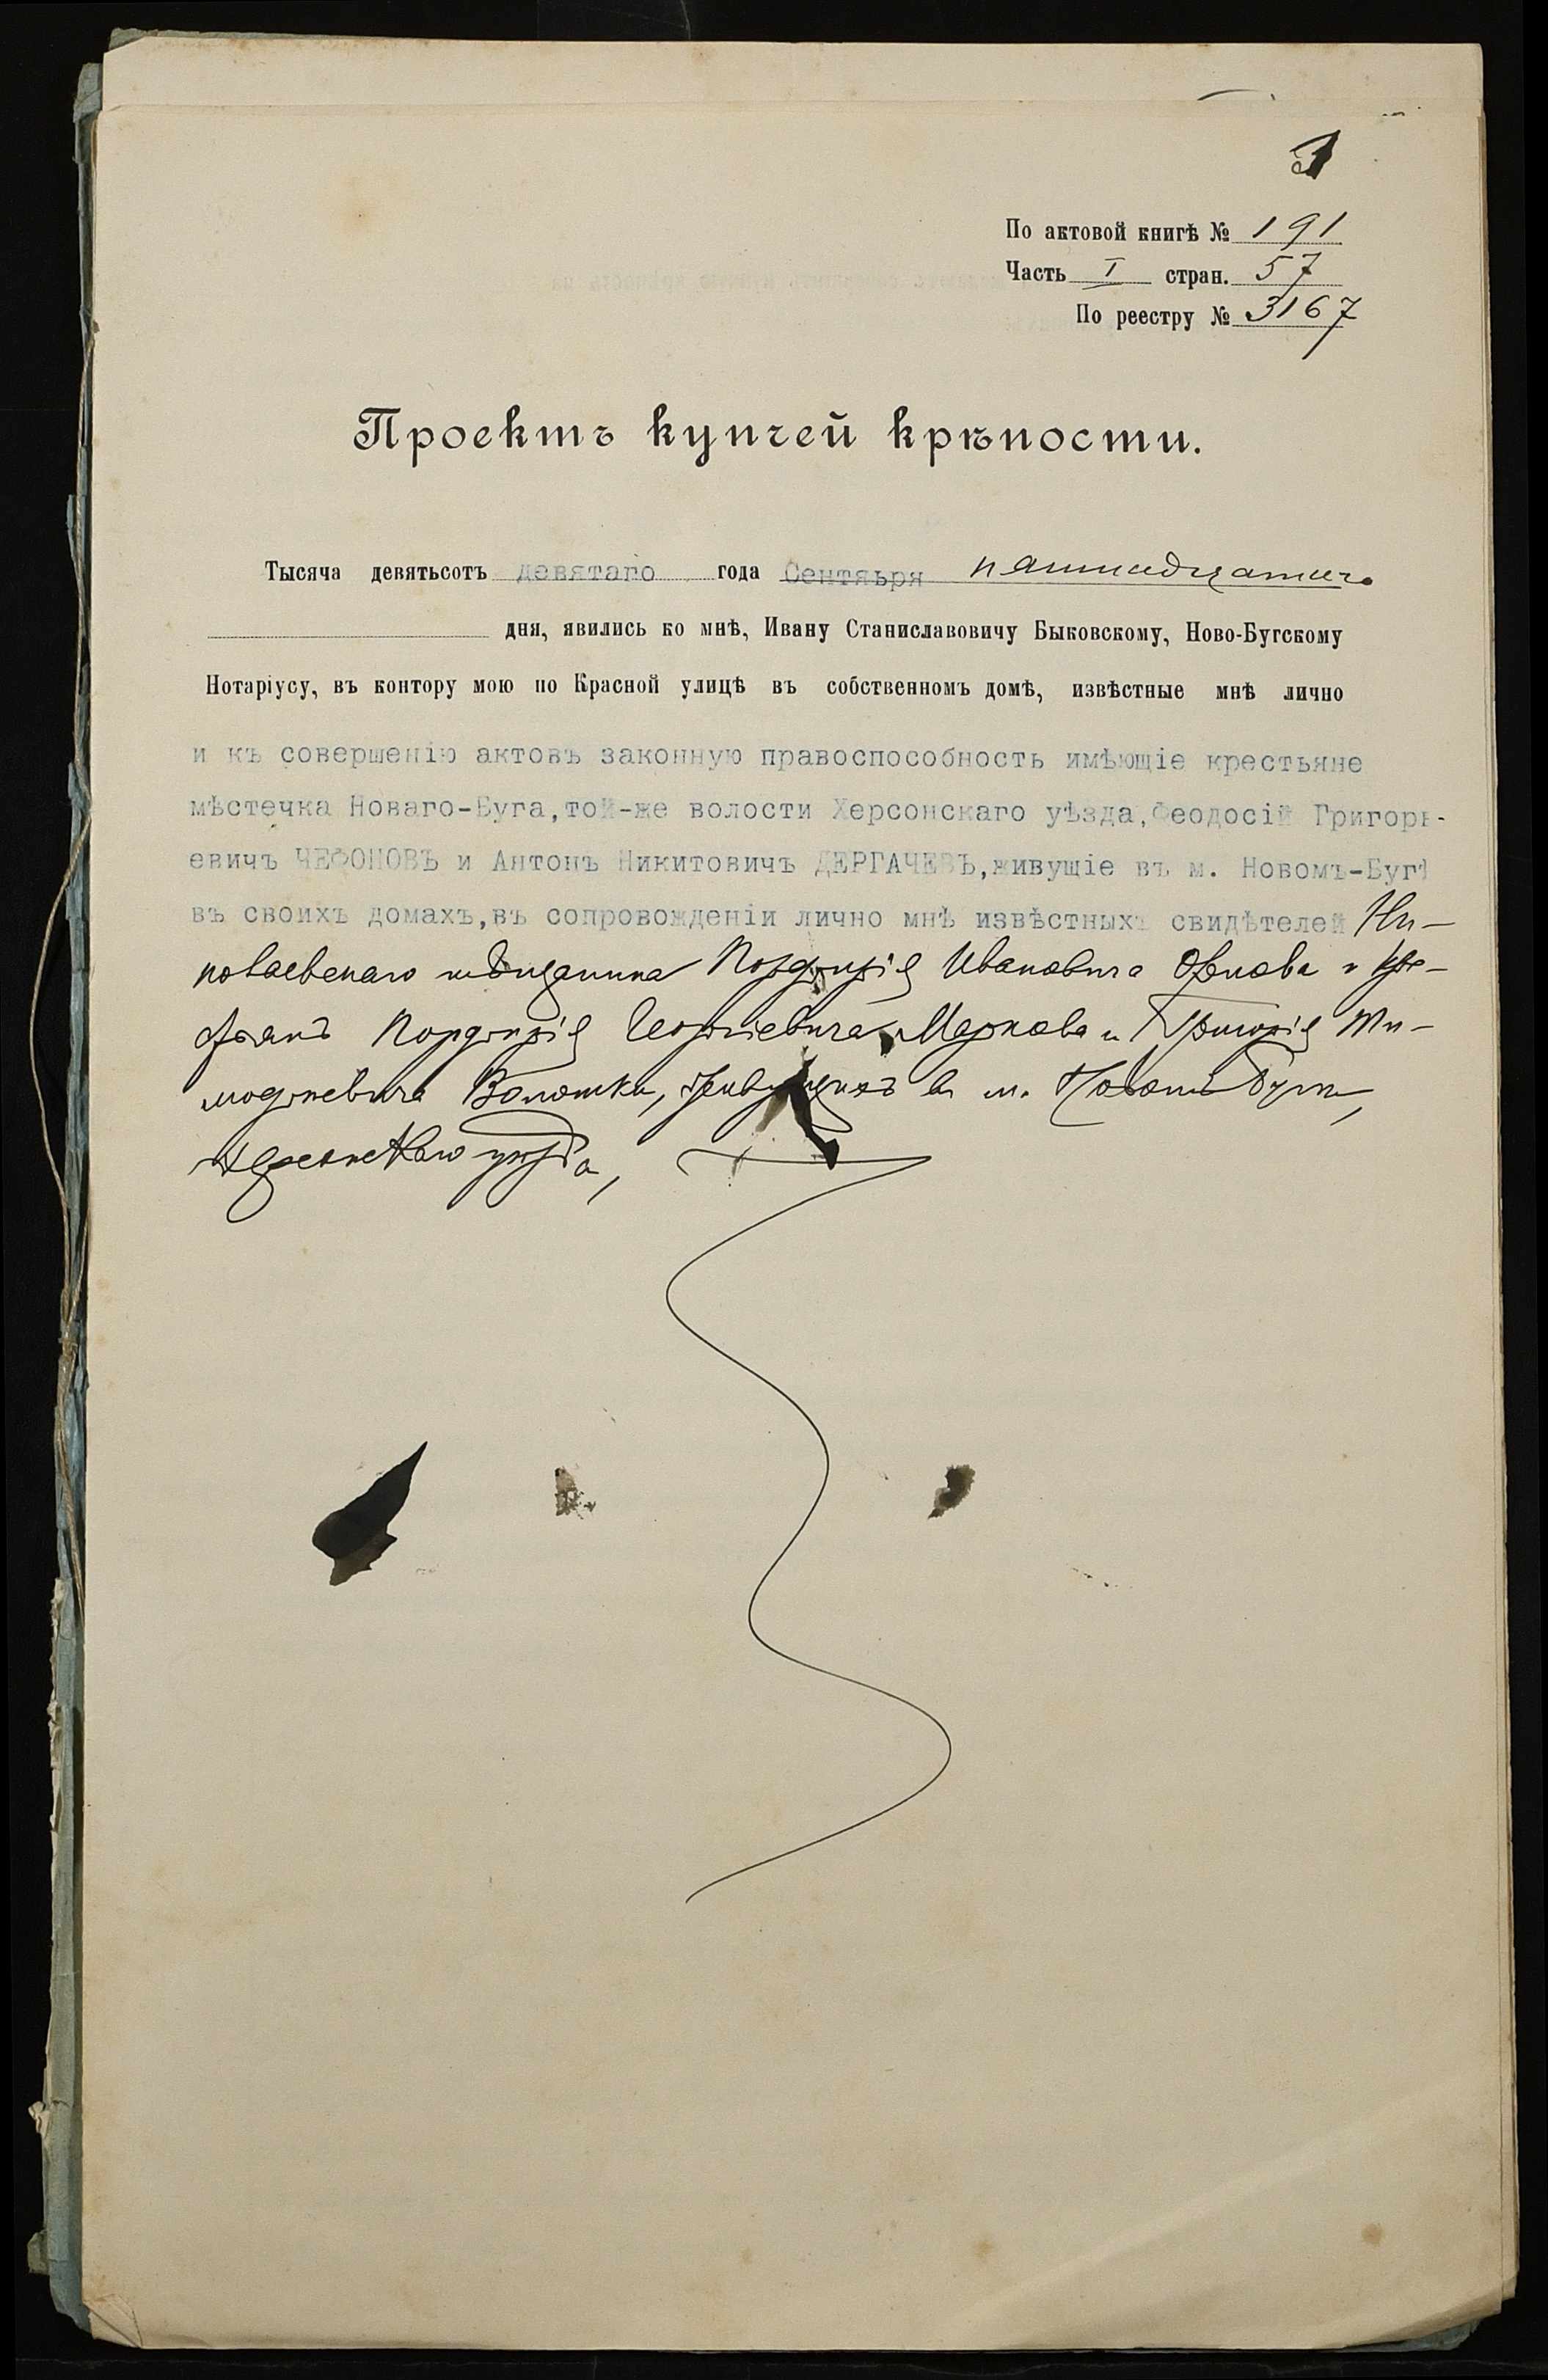 По актовой книгѣ № 191
Часть I стран. 57
По реестру № 3167
Проектъ купчей крѣпости.
Тысяча девятьсотъ девятаго года Сентября пятнадцатаго
дня, явились ко мнѣ, Ивану Станиславовичу Быковскому, Ново-Бугскому
Нотаріусу, въ контору мою по Красной улицѣ въ собственномъ домѣ, извѣстные мнѣ лично
и къ совершенію актовъ законную правоспособность имѣющіе крестьяне
мѣстечка Новаго-Буга,той-же волости Херсонскаго уѣзда,Феодосій Григорь-
евичъ ЧЕФОНОВЪ и Антонъ Никитовичъ ДЕРГАЧЕВЪ,живущіе въ м. Новомъ-Бугѣ
въ своихъ домахъ,въ сопровожденіи лично мнѣ извѣстныхъ свидѣтелей Ни-
колаевскаго мѣщанина Ивановича и кре-
стьянъ Георгіевича Маркова и Григорія Ти-
мофѣевича Волошки, живущихъ въ м. Новомъ Бугѣ,
Херсонскаго уѣзда,